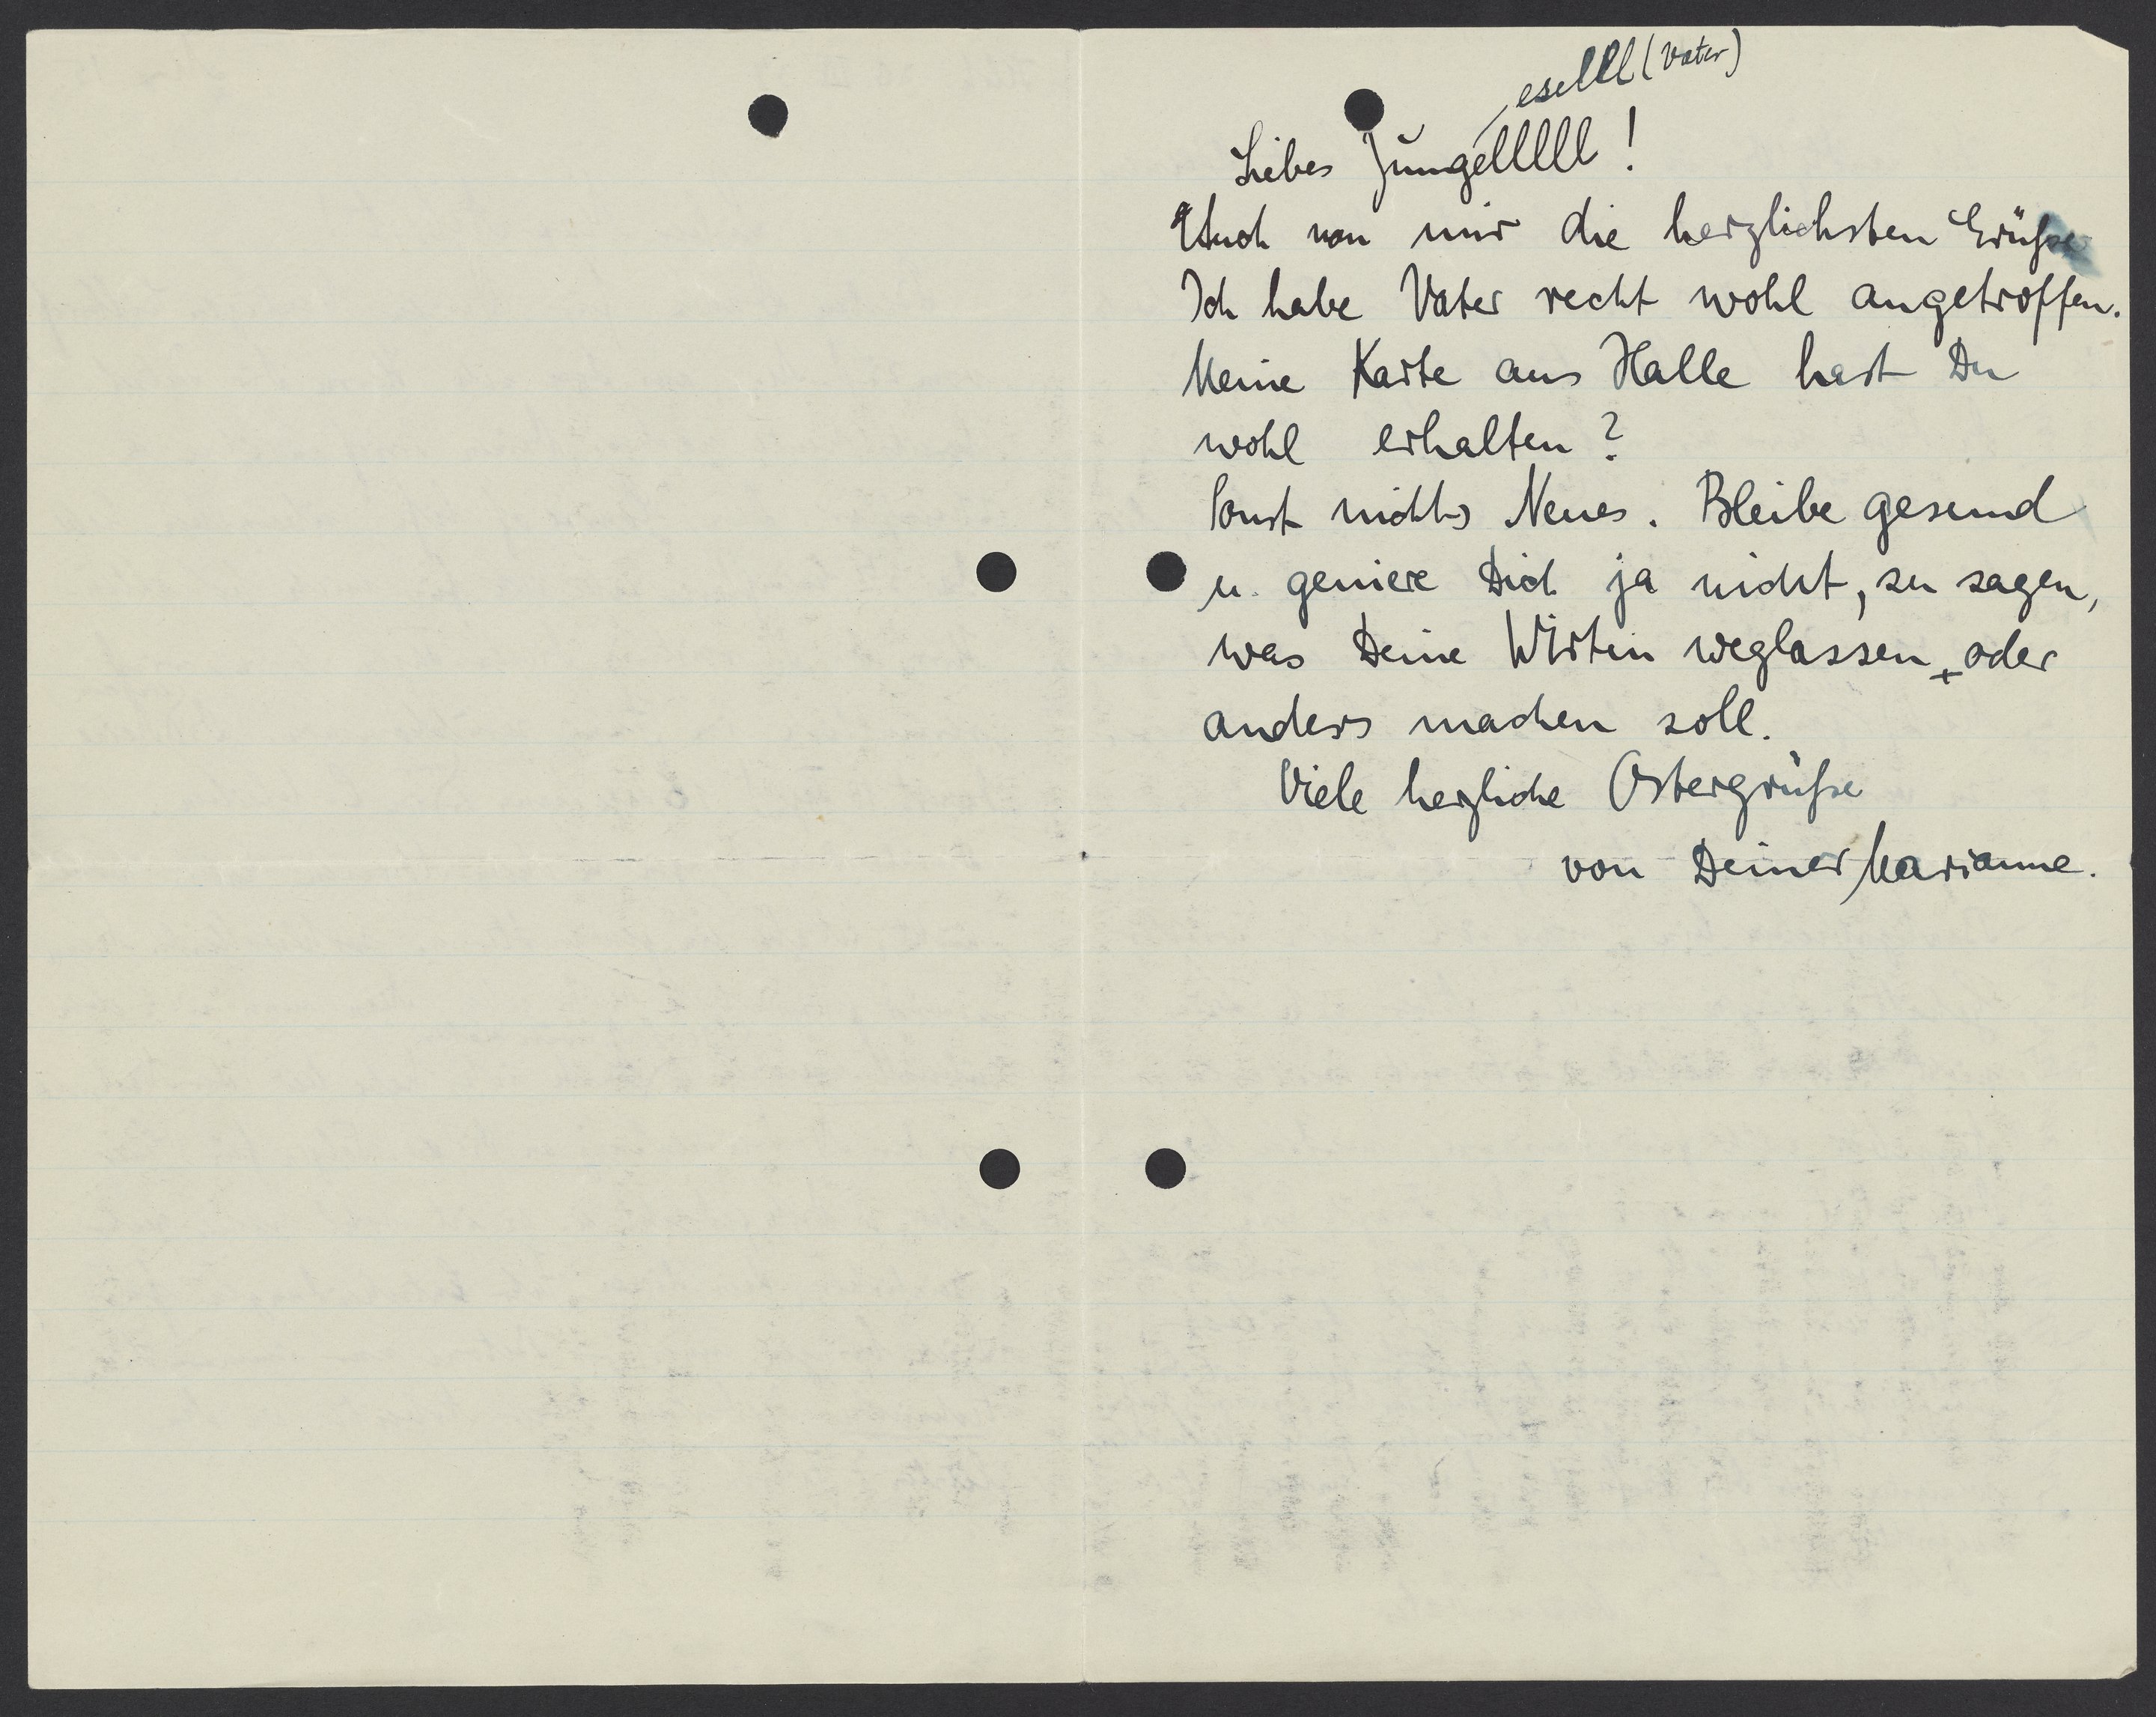 esellll (Vater)
Liebes Jungelllll!
Auch von mir die herzlichsten Grüße
Ich habe Vater recht wohl angetroffen.
Meine Karte aus Halle hast Du
wohl erhalten?
Sonst nichts Neues. Bleibe gesund
u. geniere Dich ja nicht, zu sagen,
was Deine Wirtin weglassen oder
anders machen soll.
Viele herzliche Ostergrüße
von Deiner Marianne.